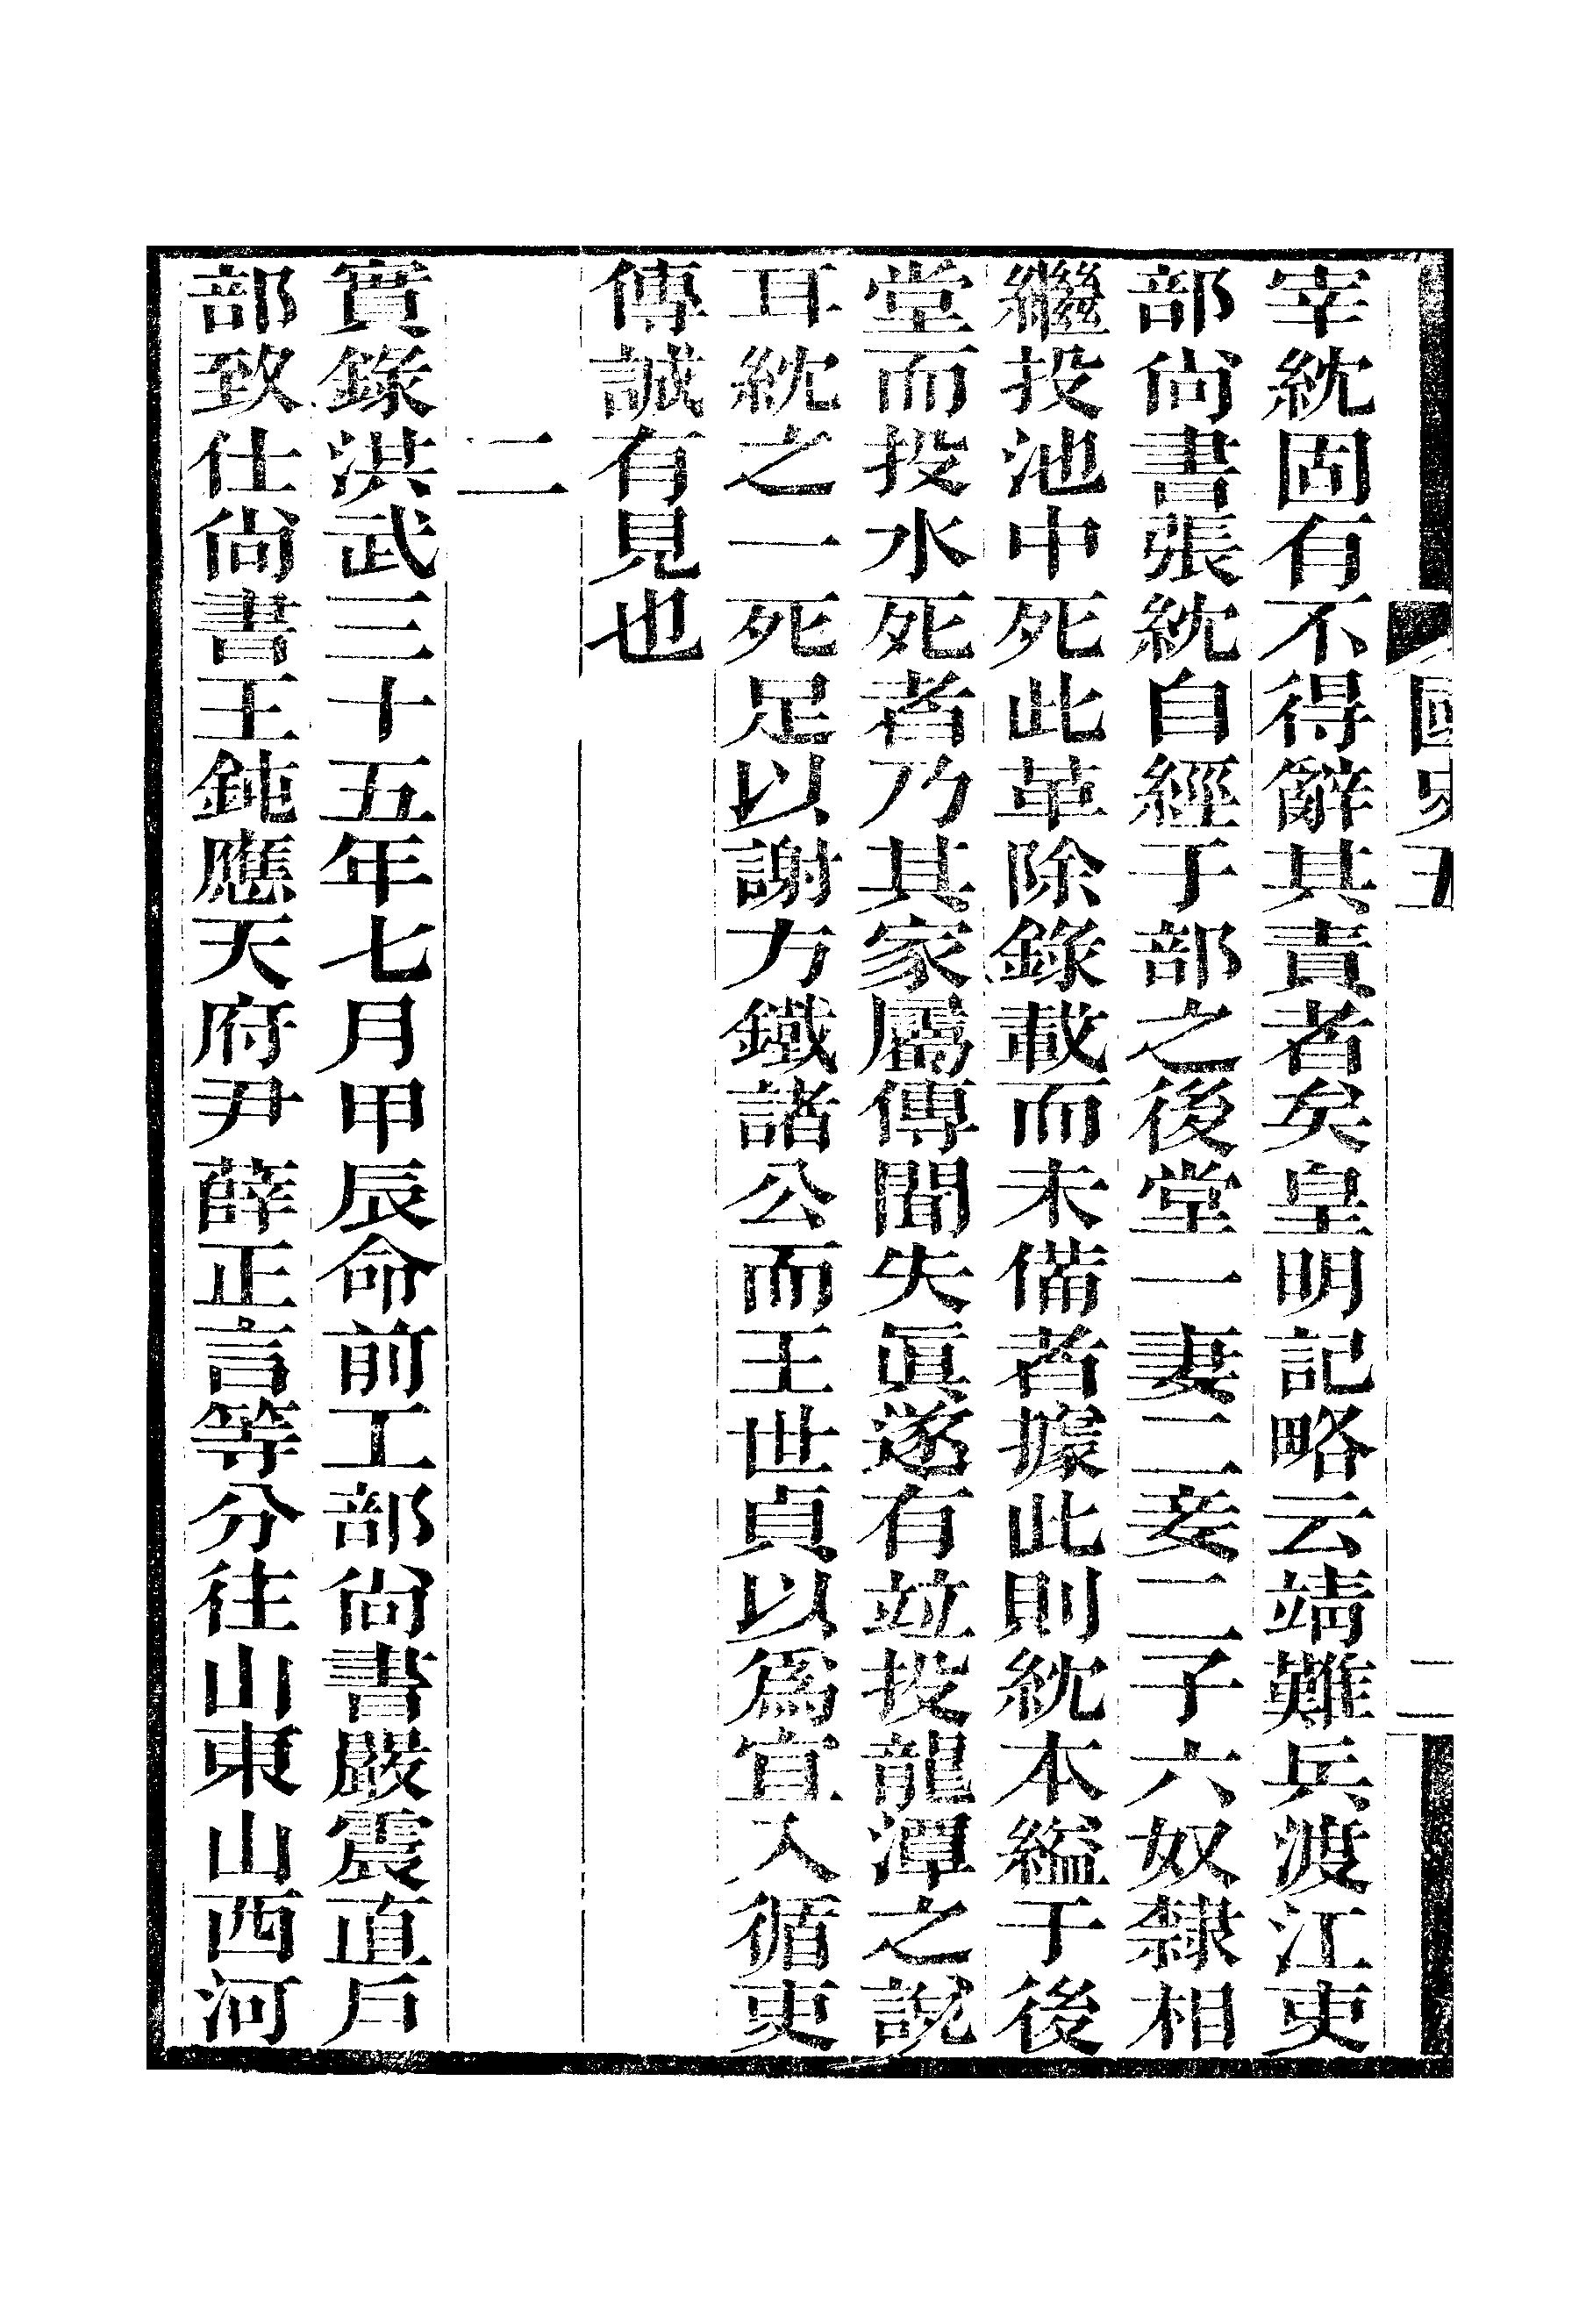 國史五
二
宰紞固有不得辭其責者矣皇明記略云靖難兵渡江吏
部尙書張紞自經于部之後堂一妻二妾二子六奴隸相
繼投池中死此革除錄載而未備者據此則紞本縊于後
堂而投水死者乃其家屬傳聞失眞遂有竝投龍潭之說
耳紞之一死足以謝方鐵諸公而王世貞以爲宜入循吏
傳誠有見也
二
實錄洪武三十五年七月甲辰命前工部尙書嚴震直戶
部致仕尙書王鈍應天府尹薛正言等分往山東山西河